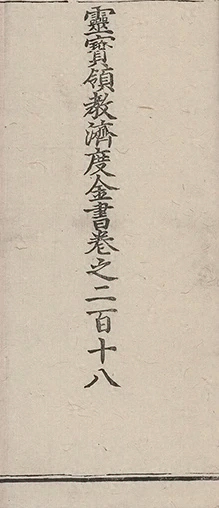 靈寶領教濟度金書卷之二百十八